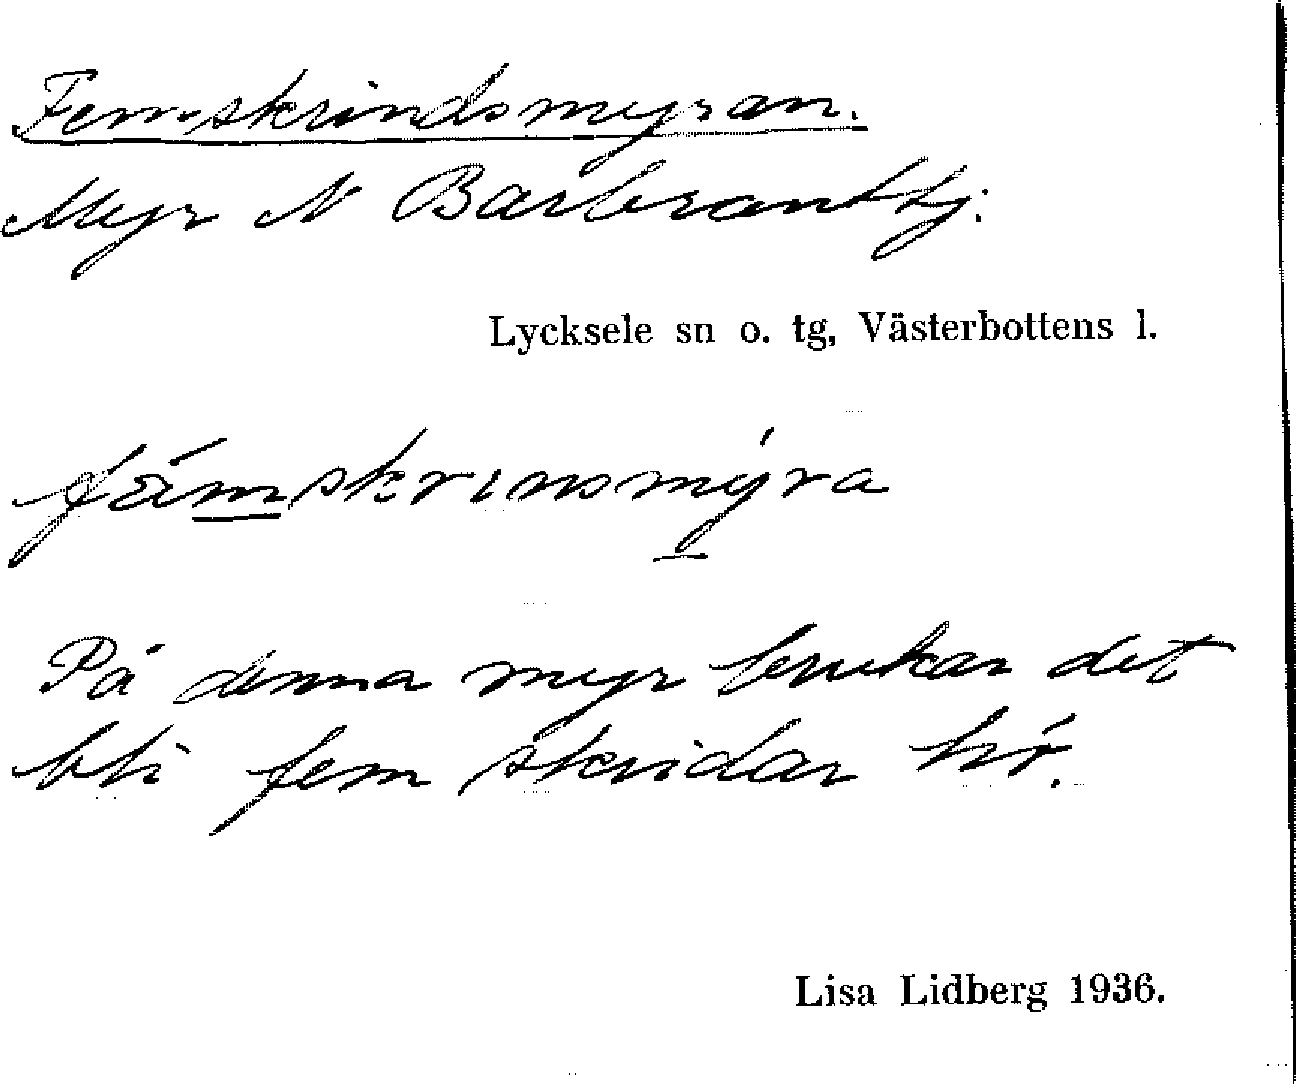 Femskrindsmyran.
Myr N Barbranttj.
Lycksele sn o. tg, Västerbottens l.
fämskrinsmýra
På denna myr brukar det
bli fem skridar hö.
Lisa Lidberg 1936.